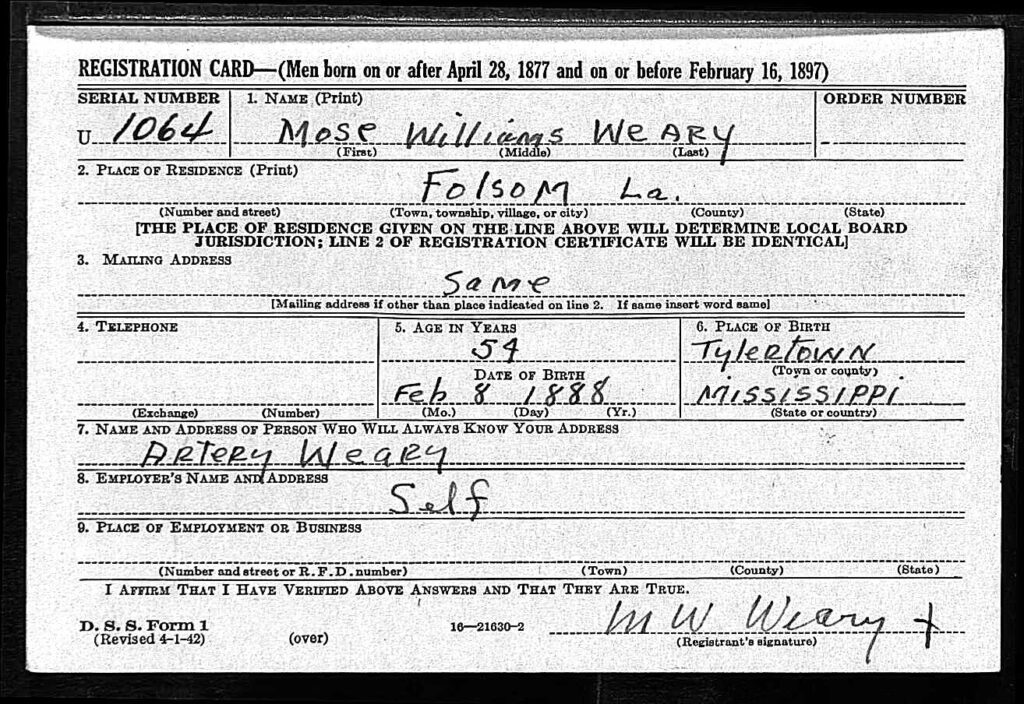 REGISTRATION CARD—(Men born on or after April 28, 1877 and on or before February 16, 1897)
SERIAL NUMBER 1. NAME (Print) ORDER NUMBER
U 1064 Mose Williams Weary
(First) (Middle) (Last)
2. PLACE OF RESIDENCE (Print)
Folsom La.
(Number and street) (Town, township, village, or city) (County) (State)
[THE PLACE OF RESIDENCE GIVEN ON THE LINE ABOVE WILL DETERMINE LOCAL BOARD
JURISDICTION; LINE 2 OF REGISTRATION CERTIFICATE WILL BE IDENTICAL]
3. MAILING ADDRESS
Same
[Mailing address if other than place indicated on line 2. If same insert word same]
4. TELEPHONE 5. AGE IN YEARS 6. PLACE OF BIRTH
54 Tylertown
DATE OF BIRTH (Town or county)
Feb 8 1888 Mississippi
(Exchange) (Number) (Mo.) (Day) (Yr.) (State or country)
7. NAME AND ADDRESS OF PERSON WHO WILL ALWAYS KNOW YOUR ADDRESS
Artery Weary
8. EMPLOYER'S NAME AND ADDRESS
Self
9. PLACE OF EMPLOYMENT OR BUSINESS
(Number and street or R. F. D. number) (Town) (County) (State)
I AFFIRM THAT I HAVE VERIFIED ABOVE ANSWERS AND THAT THEY ARE TRUE.
M W Weary +
D. S. S. Form 1 16—21630-2
(Revised 4-1-42) (over) (Registrant's signature)